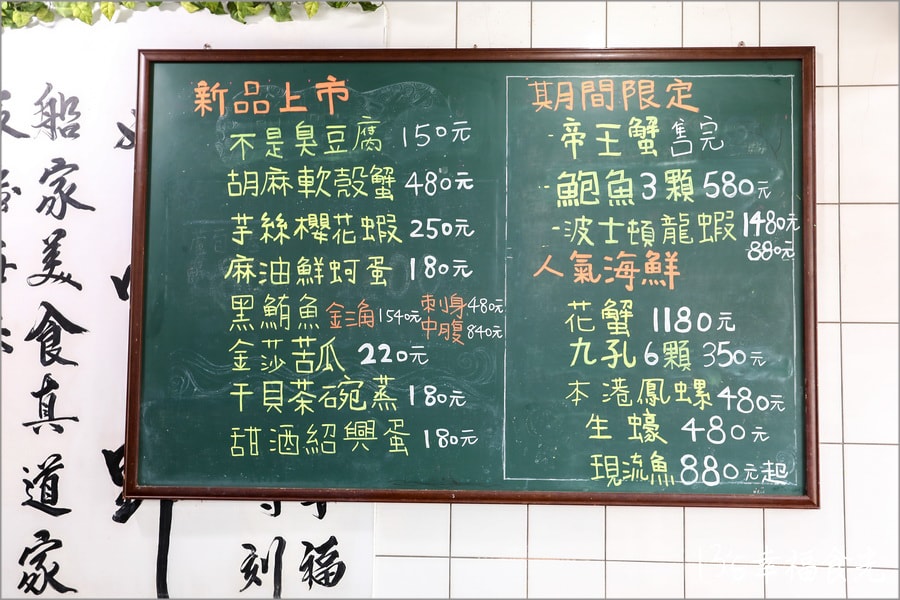 新品上市
不是臭豆腐 150元
胡麻軟殼蟹 480元
芋絲櫻花蝦 250元
麻油鮮蚵蛋 180元
黑鮪魚 金三角 1540元 刺身 480元
中腹 840元
金莎苦瓜 220元
干貝茶碗蒸 180元
甜酒紹興蛋 180元
期間限定
-帝王蟹 售完
-鮑魚 3顆 580元
-波士頓龍蝦 1480元
880元
人氣海鮮
花蟹 1180元
九孔 6顆 350元
本港鳳螺 480元
生蠔 480元
現流魚 880元起
船家美食真道家
刻
福